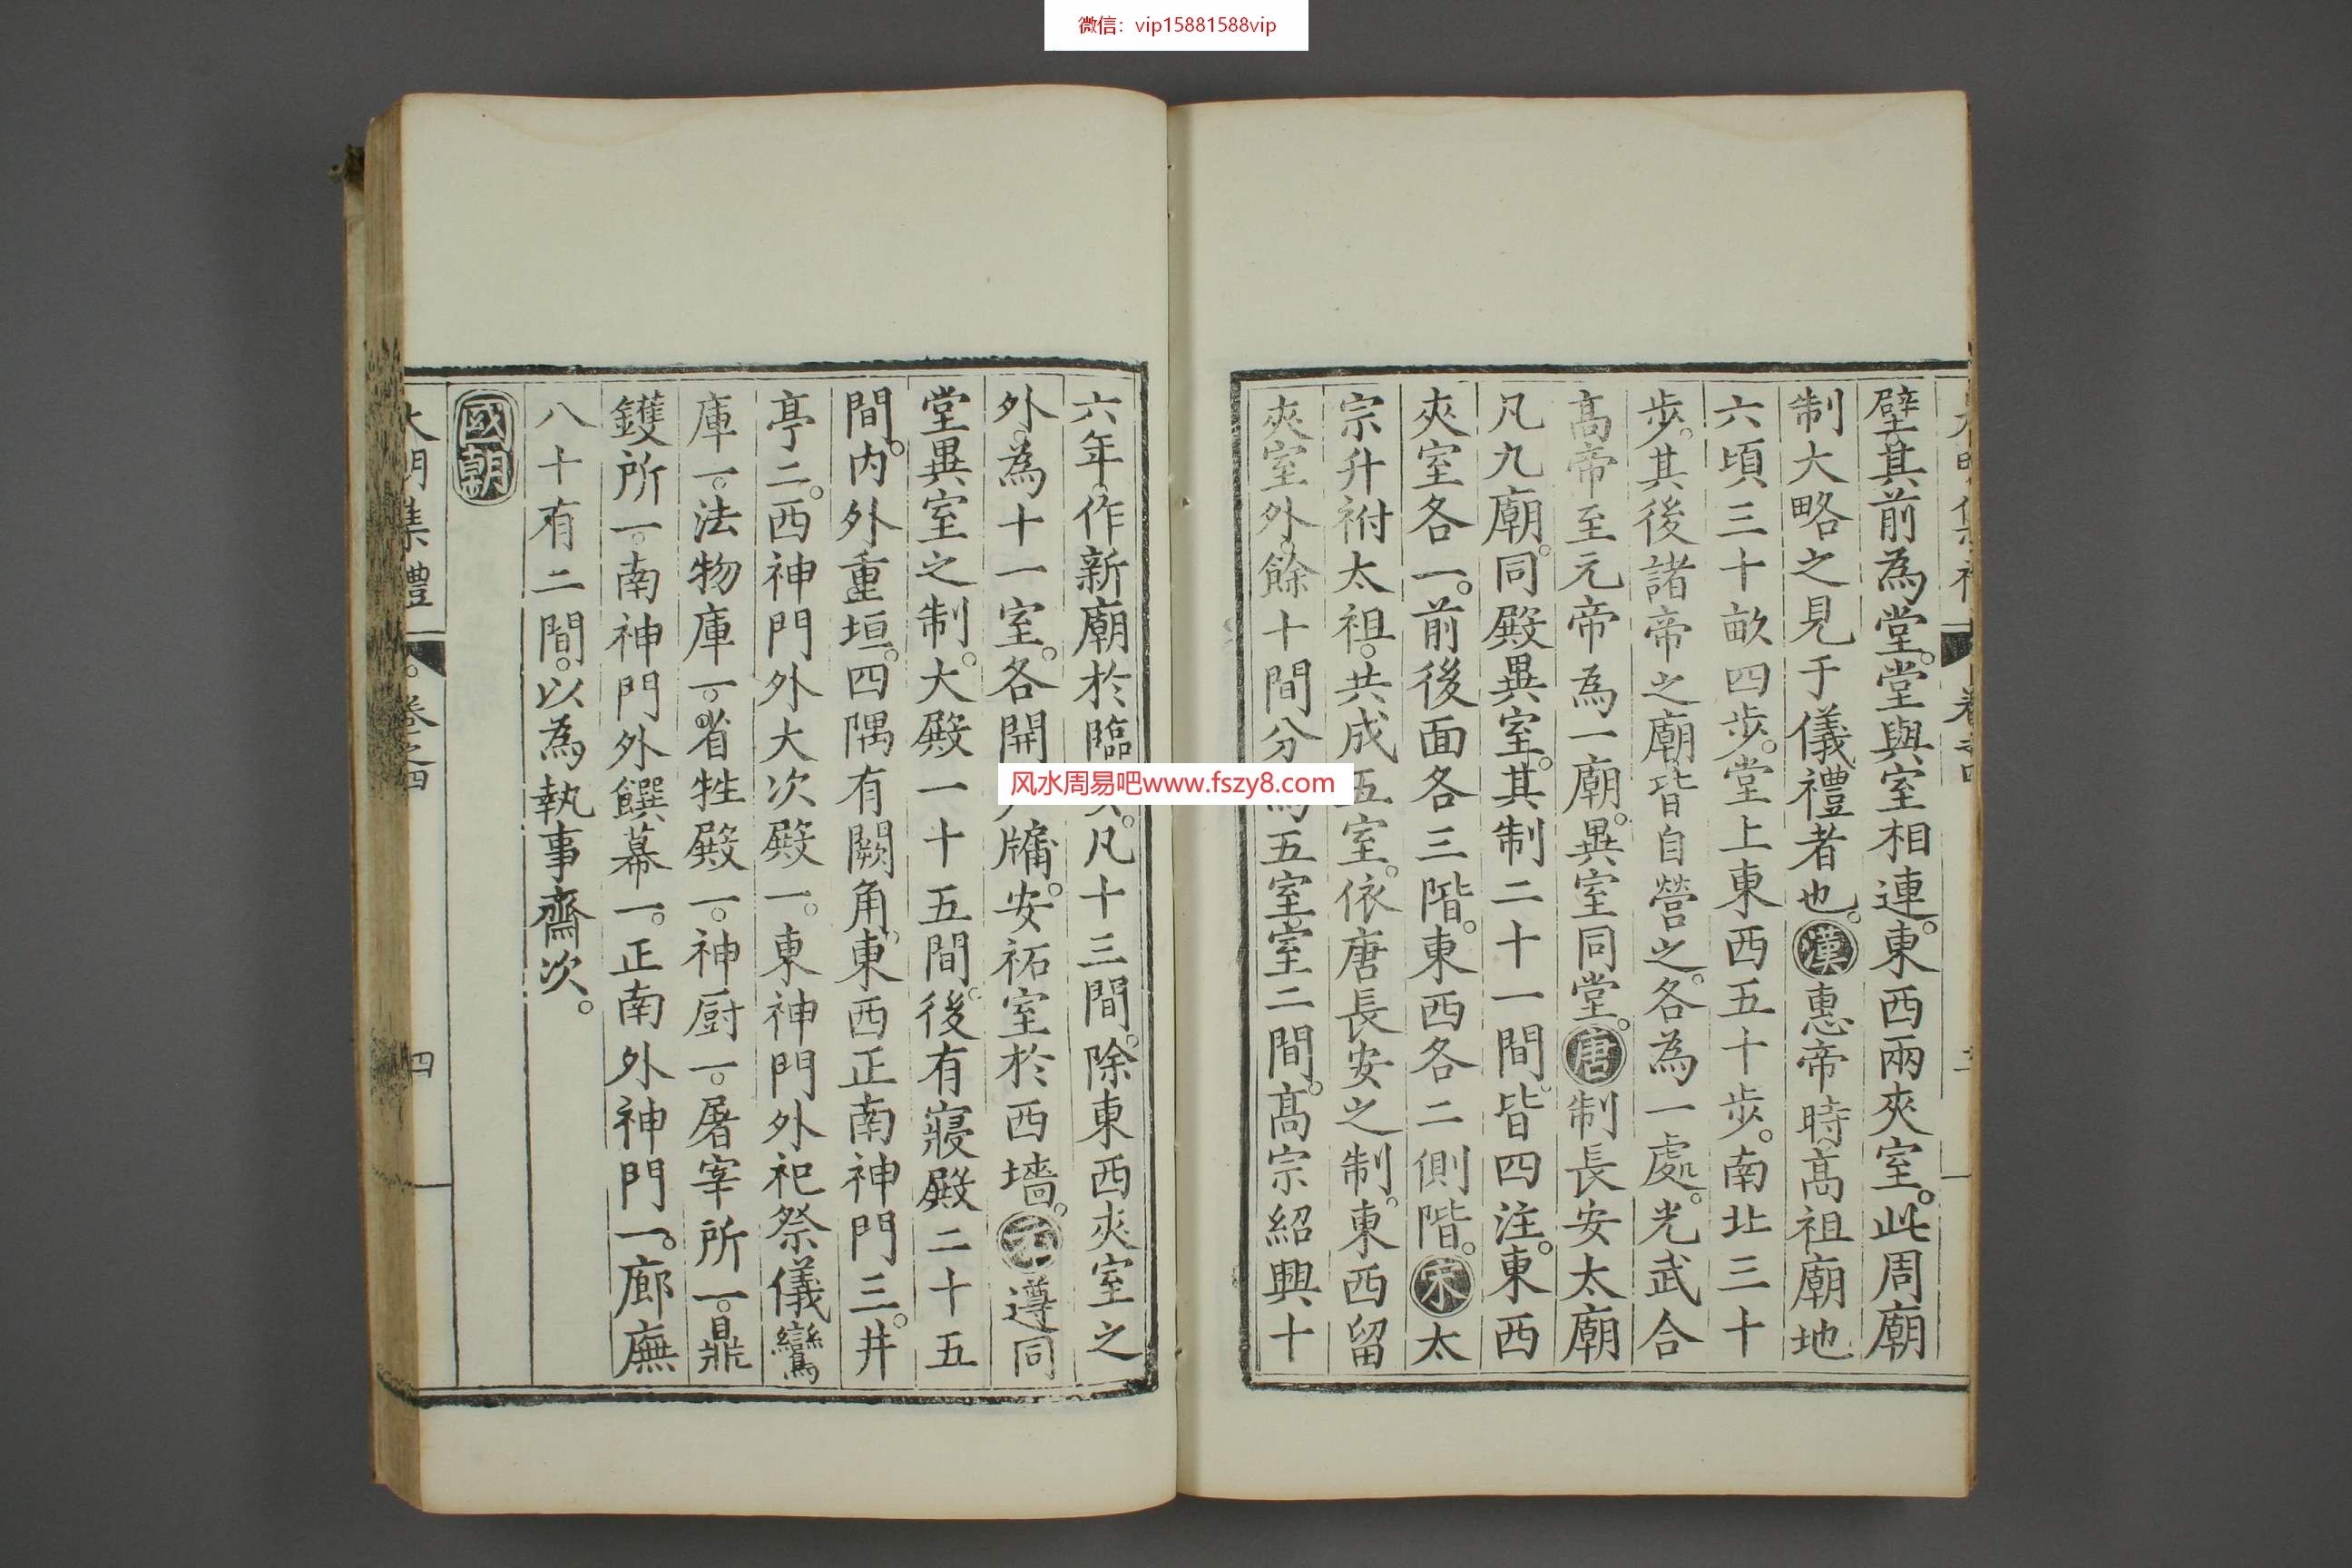 微信：vip15881588vip
壁其前為堂。堂與室相連。東西兩夾室。此周廟
制大略之見于儀禮者也。漢惠帝時。高祖廟地
六頃三十畝四步。堂上東西五十步。南北三十
步。其後諸帝之廟皆自營之。各為一處。光武合
高帝至元帝為一廟。異室同堂。唐制長安太廟
凡九廟。同殿異室。其制二十一間。皆四注。東西
夾室各一。前後面各三階。東西各二側階。宋太
宗升祔太祖。共成五室。依唐長安之制。東西留
夾室外。餘十間分為五室。室二間。高宗紹興十
六年。作新廟於臨。凡十三間。除東西夾室之
外。為十一室。各開牖。安祏室於西墻。元遵同
堂異室之制。大殿一十五間。後有寢殿二十五
間。內外重垣。四隅有闕角。東西正南神門三。井
亭二。西神門外大次殿一。東神門外祀祭儀鸞
庫一。法物庫一。省牲殿一。神厨一。屠宰所一。鼎
鑊所一。南神門外饌幕一。正南外神門一。廊廡
八十有二間。以為執事齋次。
國朝
大明集禮 卷之四 四
风水周易吧www.fszy8.com